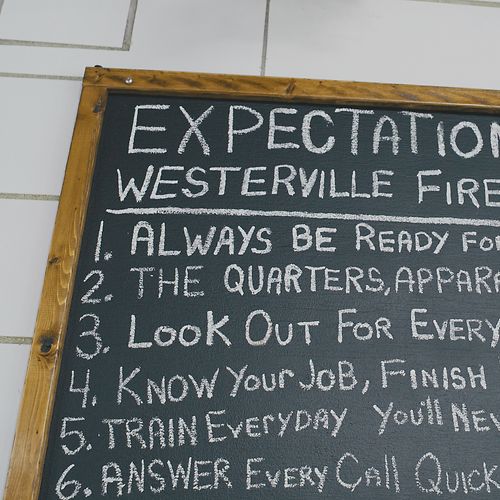 EXPECTATION
WESTERVILLE FIRE
1. ALWAYS BE READY FOR
2. THE QUARTERS, APPARA
3. LOOK OUT FOR EVERY
4. KNOW YOUR JOB, FINISH
5. TRAIN EVERYDAY YOU'll NEV
6. ANSWER EVERY CALL QUICK